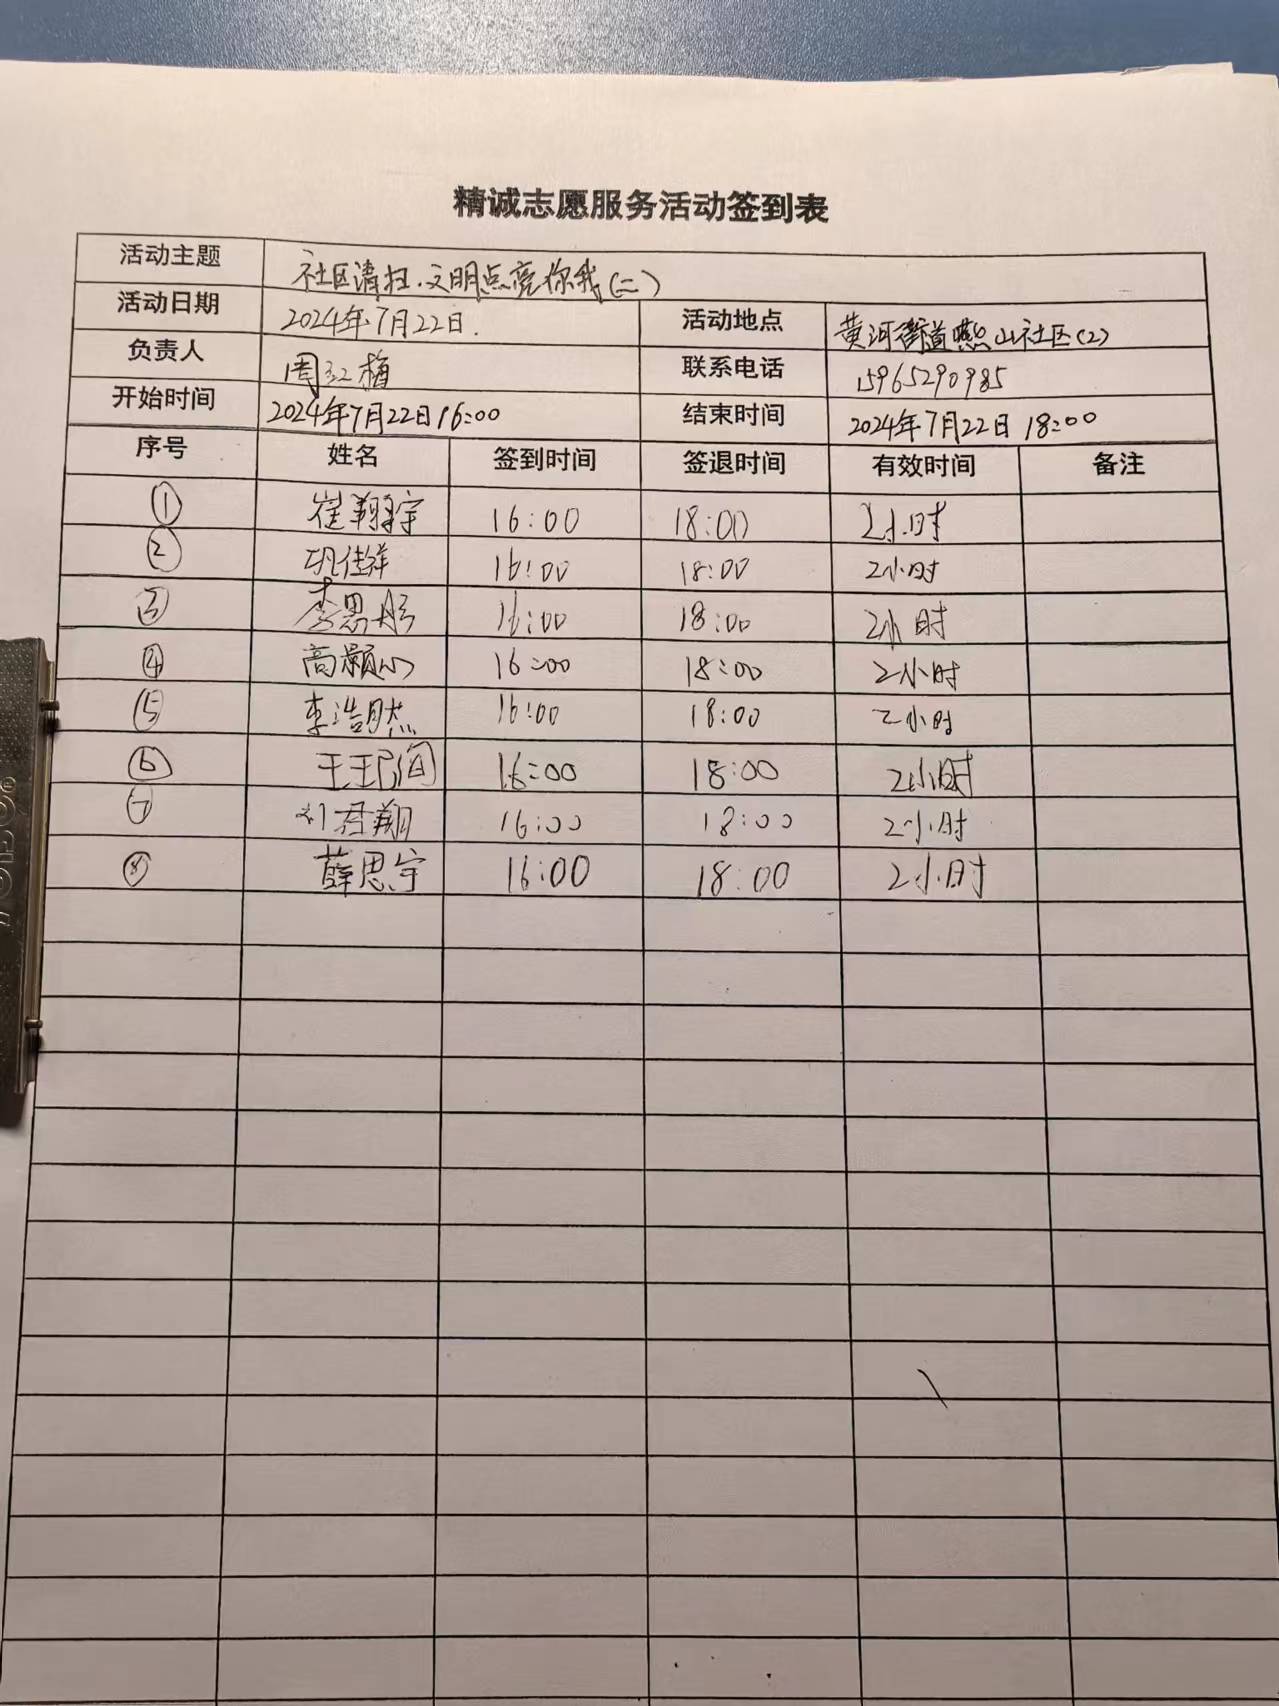 精诚志愿服务活动签到表
活动主题 社区清扫.文明点亮你我(二)
活动日期 2024年7月22日. 活动地点 黄河街道燕山社区(2)
负责人 周红梅 联系电话 15965290985
开始时间 2024年7月22日16:00 结束时间 2024年7月22日 18:00
序号 姓名 签到时间 签退时间 有效时间 备注
① 崔翔宇 16:00 18:00 2小时
② 巩佳祥 16:00 18:00 2小时
③ 李思彤 16:00 18:00 2小时
④ 高颢心 16:00 18:00 2小时
⑤ 李浩然 16:00 18:00 2小时
⑥ 16:00 18:00 2小时
⑦ 刘君翔 16:00 18:00 2小时
⑧ 薛思宇 16:00 18:00 2小时